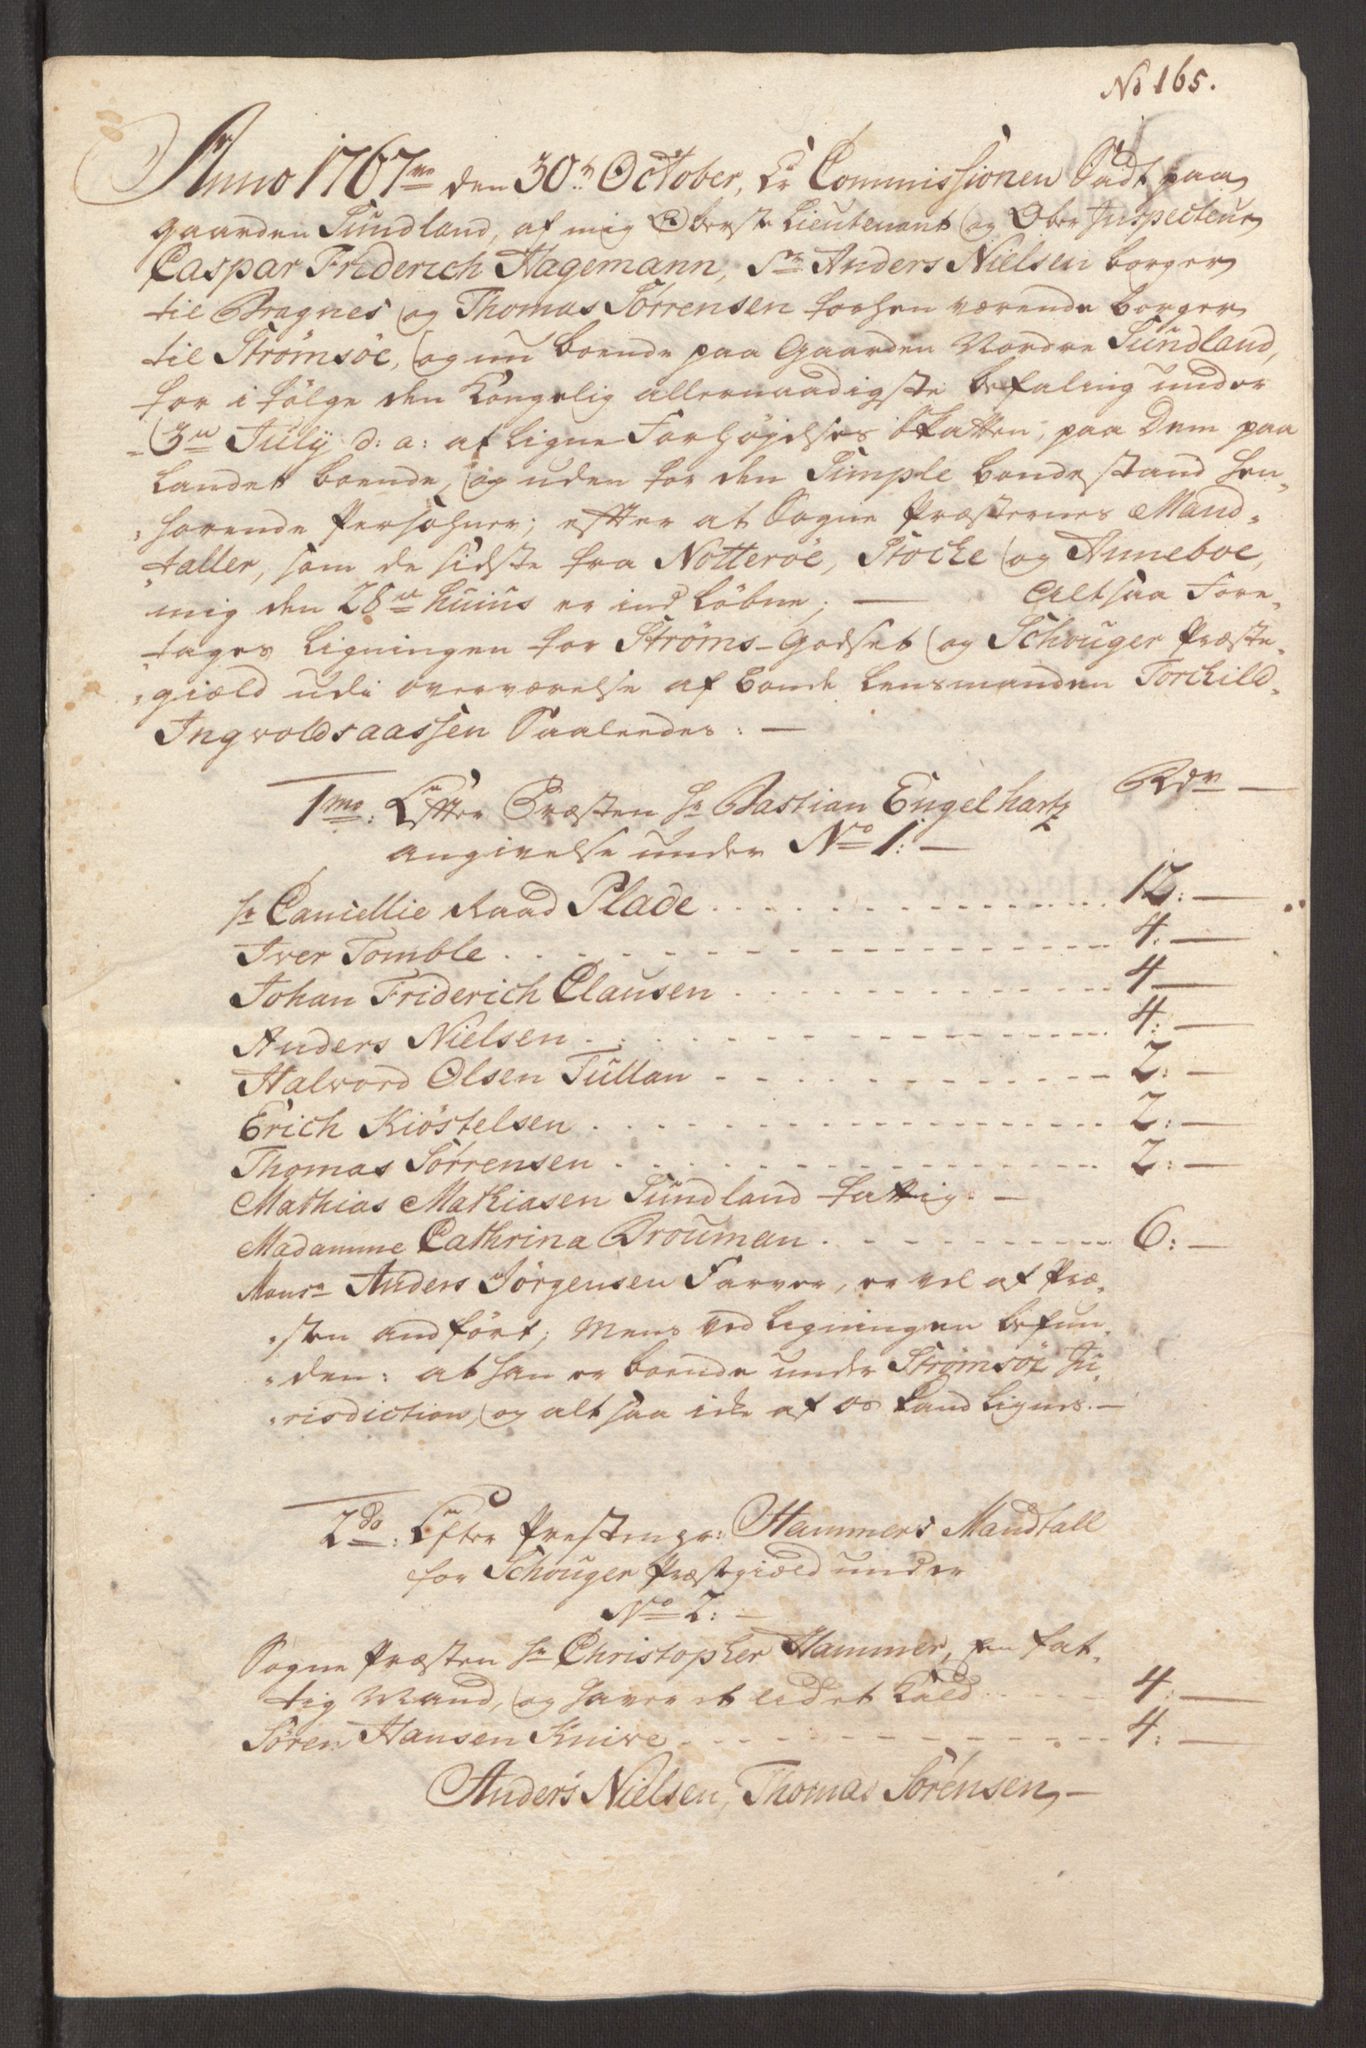 No 165.
Anno 1767me den 30te October, Er Commissionen Sadt paa
gaarden Sundland, af mig Oberste Lieutenant og Ober Inspecteur
Caspar Friderich Hagemann, Sr Anders Nielsen borger
til Bragnes og Thomas Sørrensen forhen værende borger
til Strømsöe, og nu boende paa Gaarden Nordre Sundland,
for i fölge den Kongelig allernaadigste befaling under
3die July d: a: at Ligne Forhøyelses Skatten, paa Dem paa
Landet boende, og uden for den Simple bondestand hen-
hørende Persohner; efter at Sogne Præsternes Mand-
taller, som de sidste fra Notterøe, Stocke og Anneboe,
mig den 28de huius er ind Löbne; — Altsaa Fore-
tages Ligningen for Ströms-Godset og Schouger Præste-
gield udi overværelse af bonde Lensmanden Torchild
Ingvoldsaassen Saaledes: —
1mo: Efter Præsten Hr Bastian Engelhartz Rdr —
angivelse under No 1: —
Hr Cancellie Raad Plade 12: —
Iver Tomble 4: —
Johan Friderich Clausen 4 —
Anders Nielsen 4: —
Halvord Olsen Tullan 2: —
Erich Kiöstelsen 2: —
Thomas Sørrensen 2: —
Mathias Mathiasen Sundland fattig. —
Madamme Cathrina Brouman 6: —
Monsr Anders Jörgensen Farver, er vel af Præ-
sten andført; Mens ved Ligningen befun-
den: at han er boende under Strømsöe Ju-
risdiction, og altsaa icke af os kand Lignes. —
2do: Efter Presten Hr: Hammers Mandtall
for Schouger Præstegield under
No 2: —
Sogne Præsten Hr Christopher Hammer, En fat-
tig Mand, og haver et lidet Kald 4: —
Sören Hansen Knive 4: —
Anders Nielsen, Thomas Sörensen —